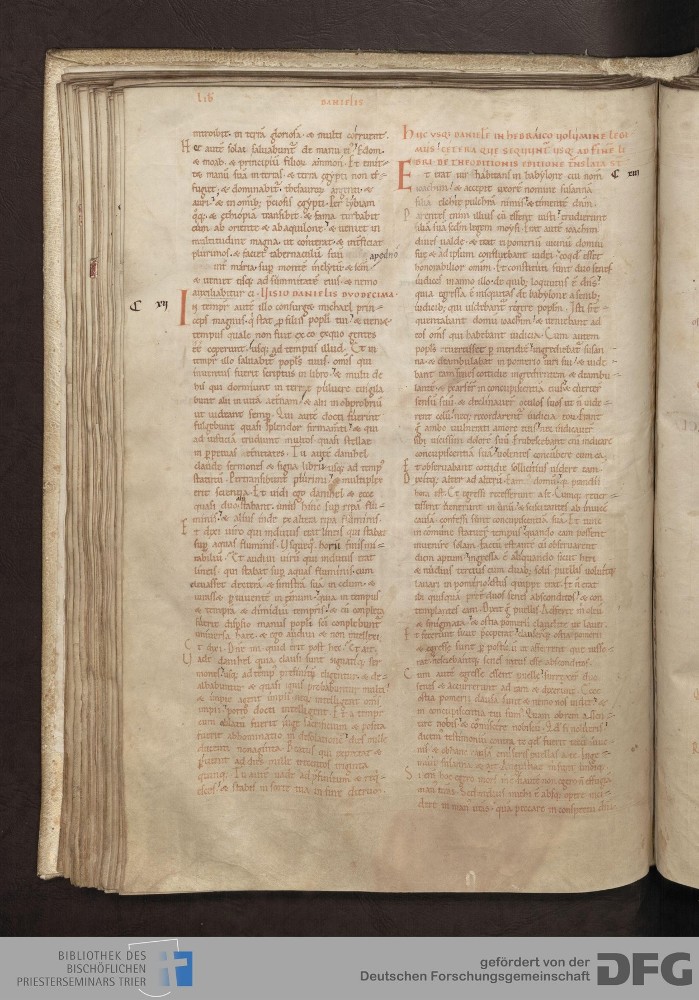 Lib
DANIELIS
introibit in terrā gloriosā & multi corruent.
Hę autē solae saluabunt de manu ei Edom.
& moab. & principiū filiorū ammon. Et
manū suā in terras. & terra egypti non
fugiet. & dominabit thesauroꝝ argenti. &
auri. & in omnib; pciosis egypti. Per
& ethiopia transibit. & fama turbabit
eum ab oriente & ab aquilone. & ueniet in
multitudine magna. ut conterat. & interficiat
plurimos. & figet tabernaculū suū apedno
int maria. sup montē inclytū & scm
& ueniet usq; ad summitatē eius. & nemo
auxiliabitur ei. VISIO DANIELIS DVODECIMA.
C XII
In tempr autē illo consurg& michael prin
ceps magnus. q stat p filiis popli tui. & ueni&
tempus quale non fuit ex eo ex quo gentes
ēē ceperunt. usq; ad tempus illud. Et in
tempr illo saluabit popls tuus. omis qui
inuentus fuerit scriptus in libro. & multi de
his qui dormiunt in terre puluere euigila
bunt. alii in uitā &ernam. & alii in obprobriū
ut uideant semp. Qui autē docti fuerint
fulgebunt quasi splendor firmamti. & qui
ad iusticiā erudiunt multos quasi stellae
in ppetuas &ernitates. Tu autē danihel
claude sermones & signa librū usq; ad temp
statutū. Pertransibunt plurimi & multiplex
erit scientia. Et uidi ego danihel & ecce
quasi duo alii stabant. unus hinc sup ripā flu
minis. & alius inde ex altera ripa fluminis.
Et dixi uiro qui indutus erat lineis qui stabat
sup aquas fluminis. Usquequo finis mi
rabiliū. Et audiui uirū qui indutus erat
lineis. qui stabat sup aquas fluminis. cum
eleuasset dexterā & sinistrā suā in celum. &
iurass& p uiuentē in &ernum. quia in tempus
& tempora & dimidiū temporis. & cū completa
fuerit dispsio manus popli sci complebunt
uniuersa haec. & ego audiui & non intellexi.
Et dixi. Dne mi. quid erit post hec. Et ait.
Uade danihel quia clausi sunt signatiq; ser
mones. usq; ad temp pfinitū. eligentur. & de
albabuntur & quasi ignis probabuntur multi
& impie agent impii. neq; intelligent oms
impii. porro docti intelligent. Et a tempr
cum ablatū fuerit iuge sacrificium & posita
fuerit abhominatio in desolatione. dies mille
ducenti nonaginta. Beatus qui expectat &
puenit ad dies mille trecentos triginta
quinq;. Tu autē uade ad pfinitum & req
esces. & stabis in sorte tua in fine dierum.
HUC USQ; DANIELE IN HEBRAICO UOLUMINE LEGI
MUS. CETERA QUE SEQUUNT USQ; AD FINE LI
BRI. DE THEODITIONIS EDITIONE TNSLATA ST
C XIII
Et erat uir habitans in babylone cui nom
ioachim. & accepit uxore nomine susannā
filiā elchie pulchrā nimis. & timente dnm.
Parentes enim illius cū essent iusti. erudierunt
filiā suā scdm legem moysi. Erat autē ioachim
diues ualde. & erat ei pomeriū uicinū domui
suę. & ad ipsum confluebant iudei. eo qd esset
honorabilior omniū. Et constituti sunt duo senes
iudices in anno illo. de quib; locutus ē dns.
quia egressa ē iniquitas de babylone a senib;
iudicib; qui uidebant regere poplm. Isti fre
quentabant domū ioachim. & ueniebant ad
eos oms qui habebant iudicia. Cum autem
popls reuertisset p meridiē. ingrediebat susan
na. & deambulabat in pomerio uiri sui. & uide
bant eam senes cottidie ingredientem & deambu
lante. & exarser in concupiscentia eius. & euerter
sensū suū. & declinauer oculos suos ut n uide
rent celū. neq; recordarent iudicioꝝ Erant
g ambo uulnerati amore eius. nec indicauer
sibi uicissim dolore suū. Erubescebant enī indicare
concupiscentiā suā. uolentes concubere cum ea.
Et obseruabant cottidie sollicitius uidere eam.
Dixitq; alter ad alterū. Eam domū. q prandii
hora est. Et egressi recesserunt a se. Cumq; reuer
tissent. uenerunt in unū. & sciscitantes ab inuicē
causā. confessi sunt concupiscentiā suā. Et tunc
in comune statuer tempus. quando eam possent
inuenire solam. Factū est autē cū obseruarent
diem aptum. ingressa ē aliquando sicut heri
& nudius tercius cum duab; solis puellis. uoluitq;
lauari in pomerio. estus quippe erat. & n erat
ibi quisquā pter duos senes absconditos. & con
templantes eam. Dixit g puellis. Afferte m oleū
& smigmata. & ostia pomerii claudite ut lauer.
Et fecerunt sicut pceperat. clauseruntq; ostia pomerii
& egresse sunt p posticū ut afferrent que iusse
rat. nesciebantq; senes intus esse absconditos.
Cum autē egresse essent puelle. surrexer duo
senes & accurrerunt ad eam & dixerunt. Ecce
ostia pomerii clausa sunt & nemo nos uidet. &
in concupiscentia tui sum. Quam obrem assen
tire nobis. & comiscere nobiscū. Qd si nolueris
dicem testimoniū contra te. qd fuerit tecū iuue
nis. & ob hanc causā emiseris puellas a te. Inge
muit susanna & ait. Angustiae m sunt undiq;.
Si enī hoc egero mors m ē. si autē non egero n effugiā
man uras. Sed melius mihi ē absq; opere inci
dere in man uras. qua peccare in conspectu dni.
BIBLIOTHEK DES
BISCHÖFLICHEN
PRIESTERSEMINARS TRIER
gefördert von der
Deutschen Forschungsgemeinschaft
DFG